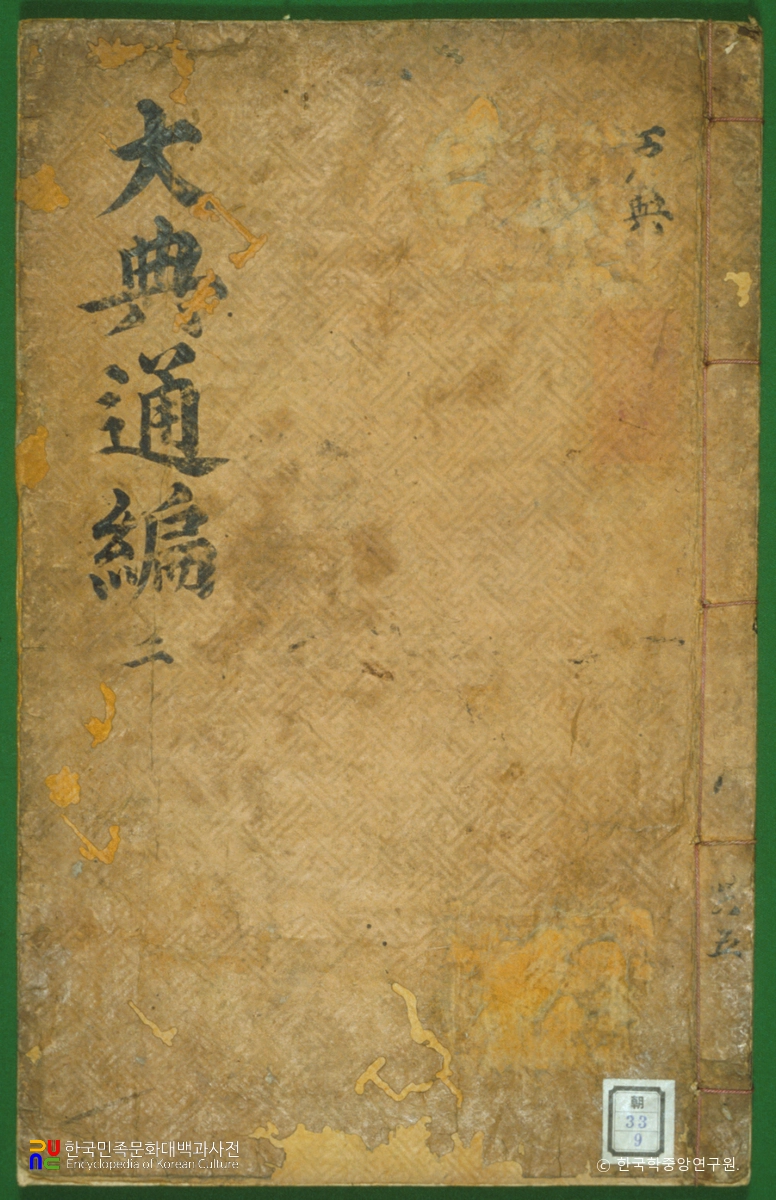 大典通編
二
典
共五
朝
33
9
한국민족문화대백과사전
Encyclopedia of Korean Culture
© 한국학중앙연구원